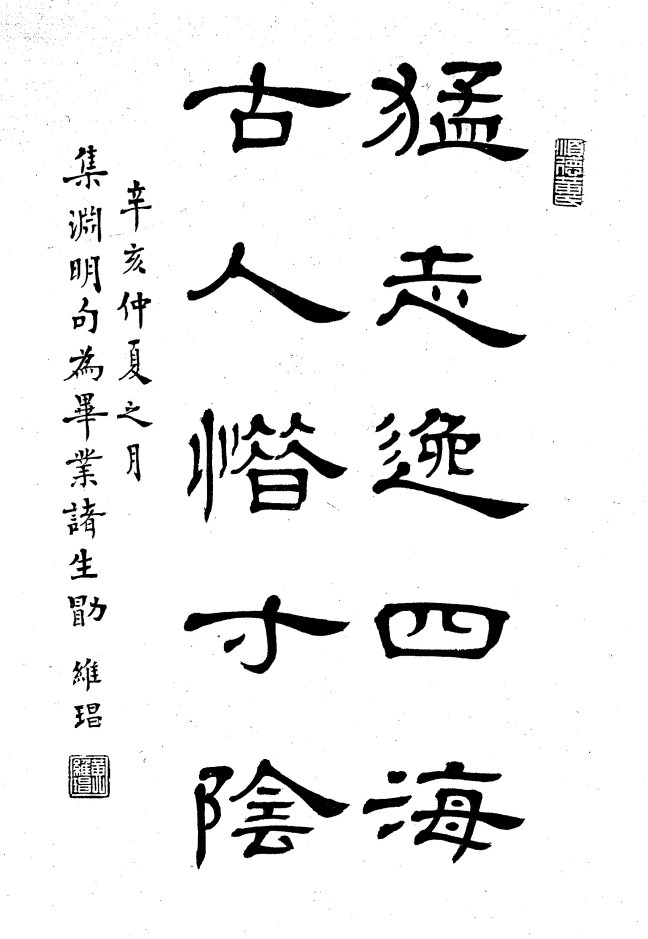 順德黃氏
猛志逸四海
古人惜寸陰
辛亥仲夏之月
集淵明句為畢業諸生勖 維琩